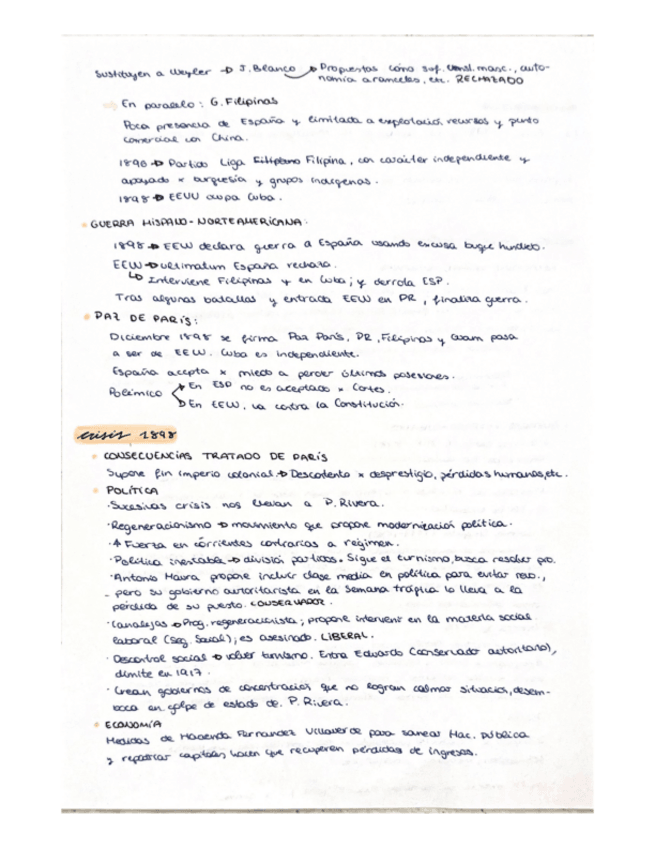 Sustituyen a Weyler → J. Blanco → Propuestas como suf. univ. masc., auto-
nomía aranceles, etc. RECHAZADO
En paralelo: G. Filipinas
Poca presencia de España y limitada a explotación recursos y punto
comercial con China.
1896 → Partido Liga Filipina, con carácter independiente y
apoyado x burguesía y grupos indígenas.
1898 → EEUU ocupa Cuba.
GUERRA HISPANO-NORTEAMERICANA:
1898 → EEUU declara guerra a España usando excusa buque hundido.
EEUU → ultimatum España rechaza.
↳ Interviene Filipinas y en Cuba; y derrota ESP.
Tras algunas batallas y entrada EEUU en PR, finaliza guerra.
PAZ DE PARÍS:
Diciembre 1898 se firma Paz París, PR, Filipinas y Guam pasa
a ser de EEUU. Cuba es independiente.
España acepta x miedo a perder últimas posesiones.
Polémico → En ESP no es aceptado x Cortes.
→ En EEUU, va contra la Constitución.
crisis 1898
CONSECUENCIAS TRATADO DE PARÍS
Supone fin imperio colonial → Descontento x desprestigio, pérdidas humanas, etc.
POLÍTICA
· Sucesivas crisis nos llevan a P. Rivera.
· Regeneracionismo → movimiento que propone modernización política.
· Fuerza en corrientes contrarias a régimen.
· Política inestable → división partidos. Sigue el turnismo, busca resolver pro.
· Antonio Maura propone incluir clase media en política para evitar revo.,
pero su gobierno autoritarista en la Semana trágica lo lleva a la
pérdida de su puesto. CONSERVADOR.
· Canalejas → Prog. regeneracionista; propone intervenir en la materia social
laboral (Seg. Social); es asesinado. LIBERAL.
· Descontrol social → volver turnismo. Entra Eduardo (conservador autoritario),
dimite en 1917.
· Crean gobiernos de concentración que no logran calmar situación, desem-
boca en golpe de estado de P. Rivera.
ECONOMÍA
Medidas de Hacienda Fernandez Villaverde para sanear Hac. pública
y repatriar capitales, hacen que recuperen pérdidas de ingresos.